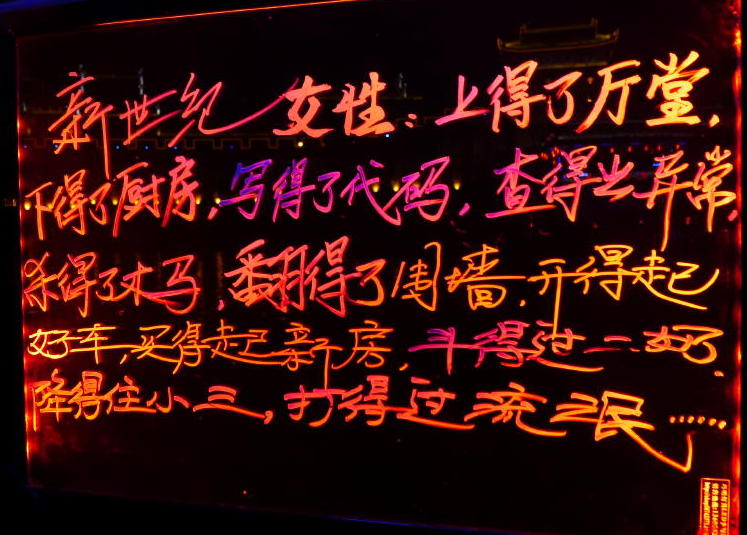 新世纪女性：上得了厅堂，
下得了厨房，写得了代码，查得出异常，
杀得了木马，翻得了围墙，开得起
好车，买得起新房，斗得过二奶，
降得住小三，打得过流氓……